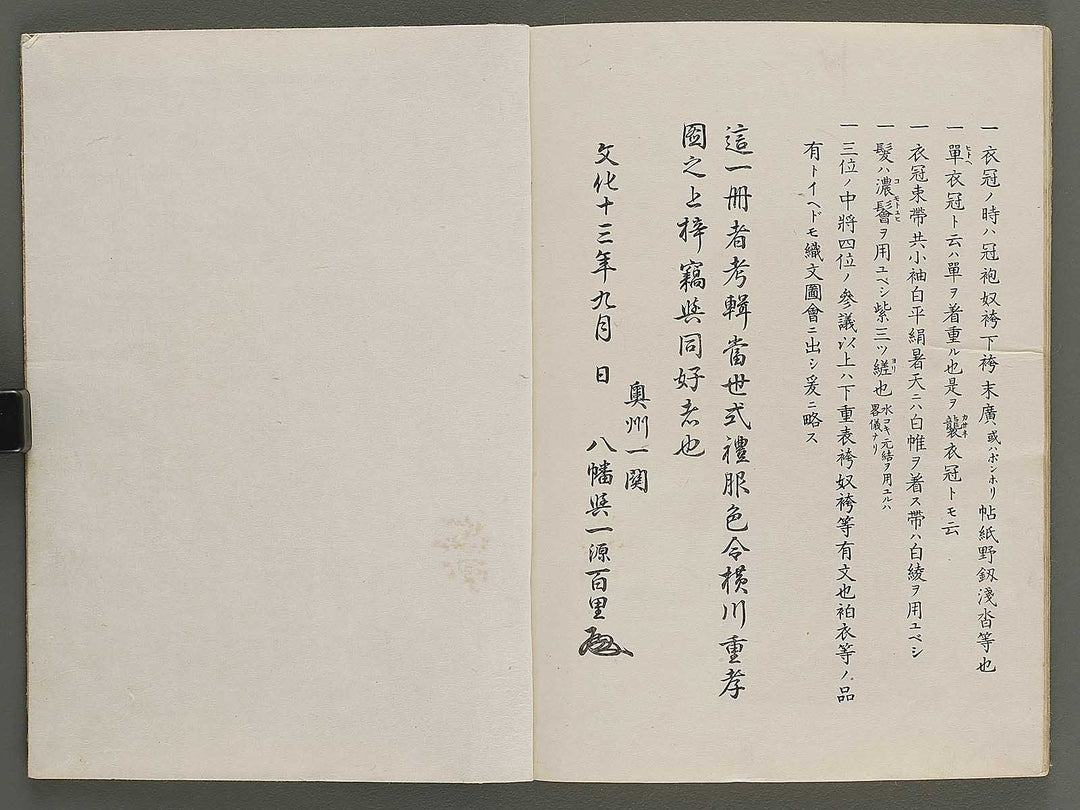 一衣冠ノ時ハ冠袍奴袴下袴末廣或ハボンホリ帖紙野釼淺沓等也
一單衣冠ト云ハ單ヲ着重ル也是ヲ襲衣冠トモ云
一衣冠束帶共小袖白平絹暑天ニハ白帷ヲ着ス帶ハ白綾ヲ用ユベシ
一髮ハ濃鬠ヲ用ユベシ紫三ツ縒也水コキ元結ヲ用ユルハ畧儀ナリ
一三位ノ中將四位ノ參議以上ハ下重表袴奴袴等有文也袙衣等ノ品
有トイヘドモ織文圖會ニ出シ爰ニ略ス
這一冊者考輯當世式禮服色令横川重孝
圖之上梓竊與同好者也
文化十三年九月 日
奥州一関
八幡與一源百里